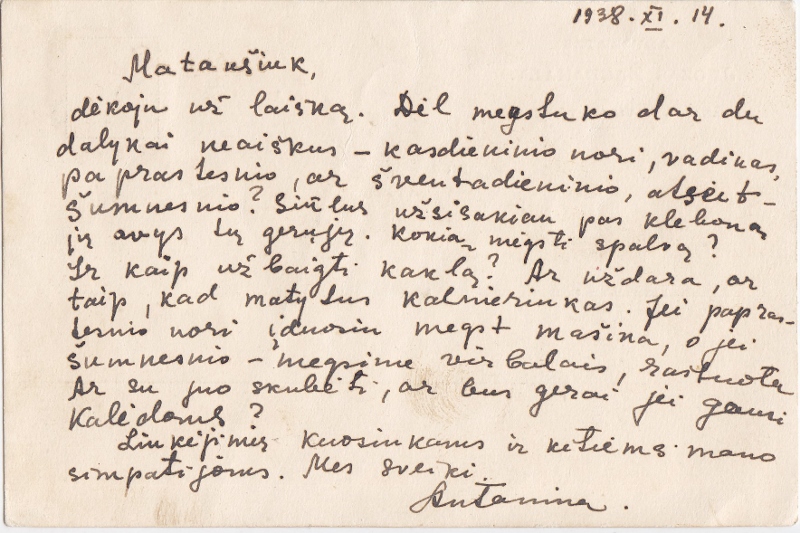 1938.XI.14.
Mataušiuk,
dėkoju už laišką. Dėl megstuko dar du
dalykai neaiškus – kasdieninio nori, vadinas,
paprastesnio, ar šventadieninio, atseit –
šumnesnio? Siūlus užsisakiau pas kleboną
jų avys tų gerųjų. Kokią mėgsti spalvą?
Ir kaip užbaigti kaklą? Ar uždara, ar
taip, kad matytus kalnieriukas. Jei papras-
tesnio nori įduosiu megst mašina, o jei
šumnesnio – megsime virbalais, raštuota
Ar su juo skubėti, ar bus gerai jei gausi
Kalėdoms?
Linkėjimių Kuosinkams ir kitiems mano
simpatijoms. Mes sveiki.
Antanina.